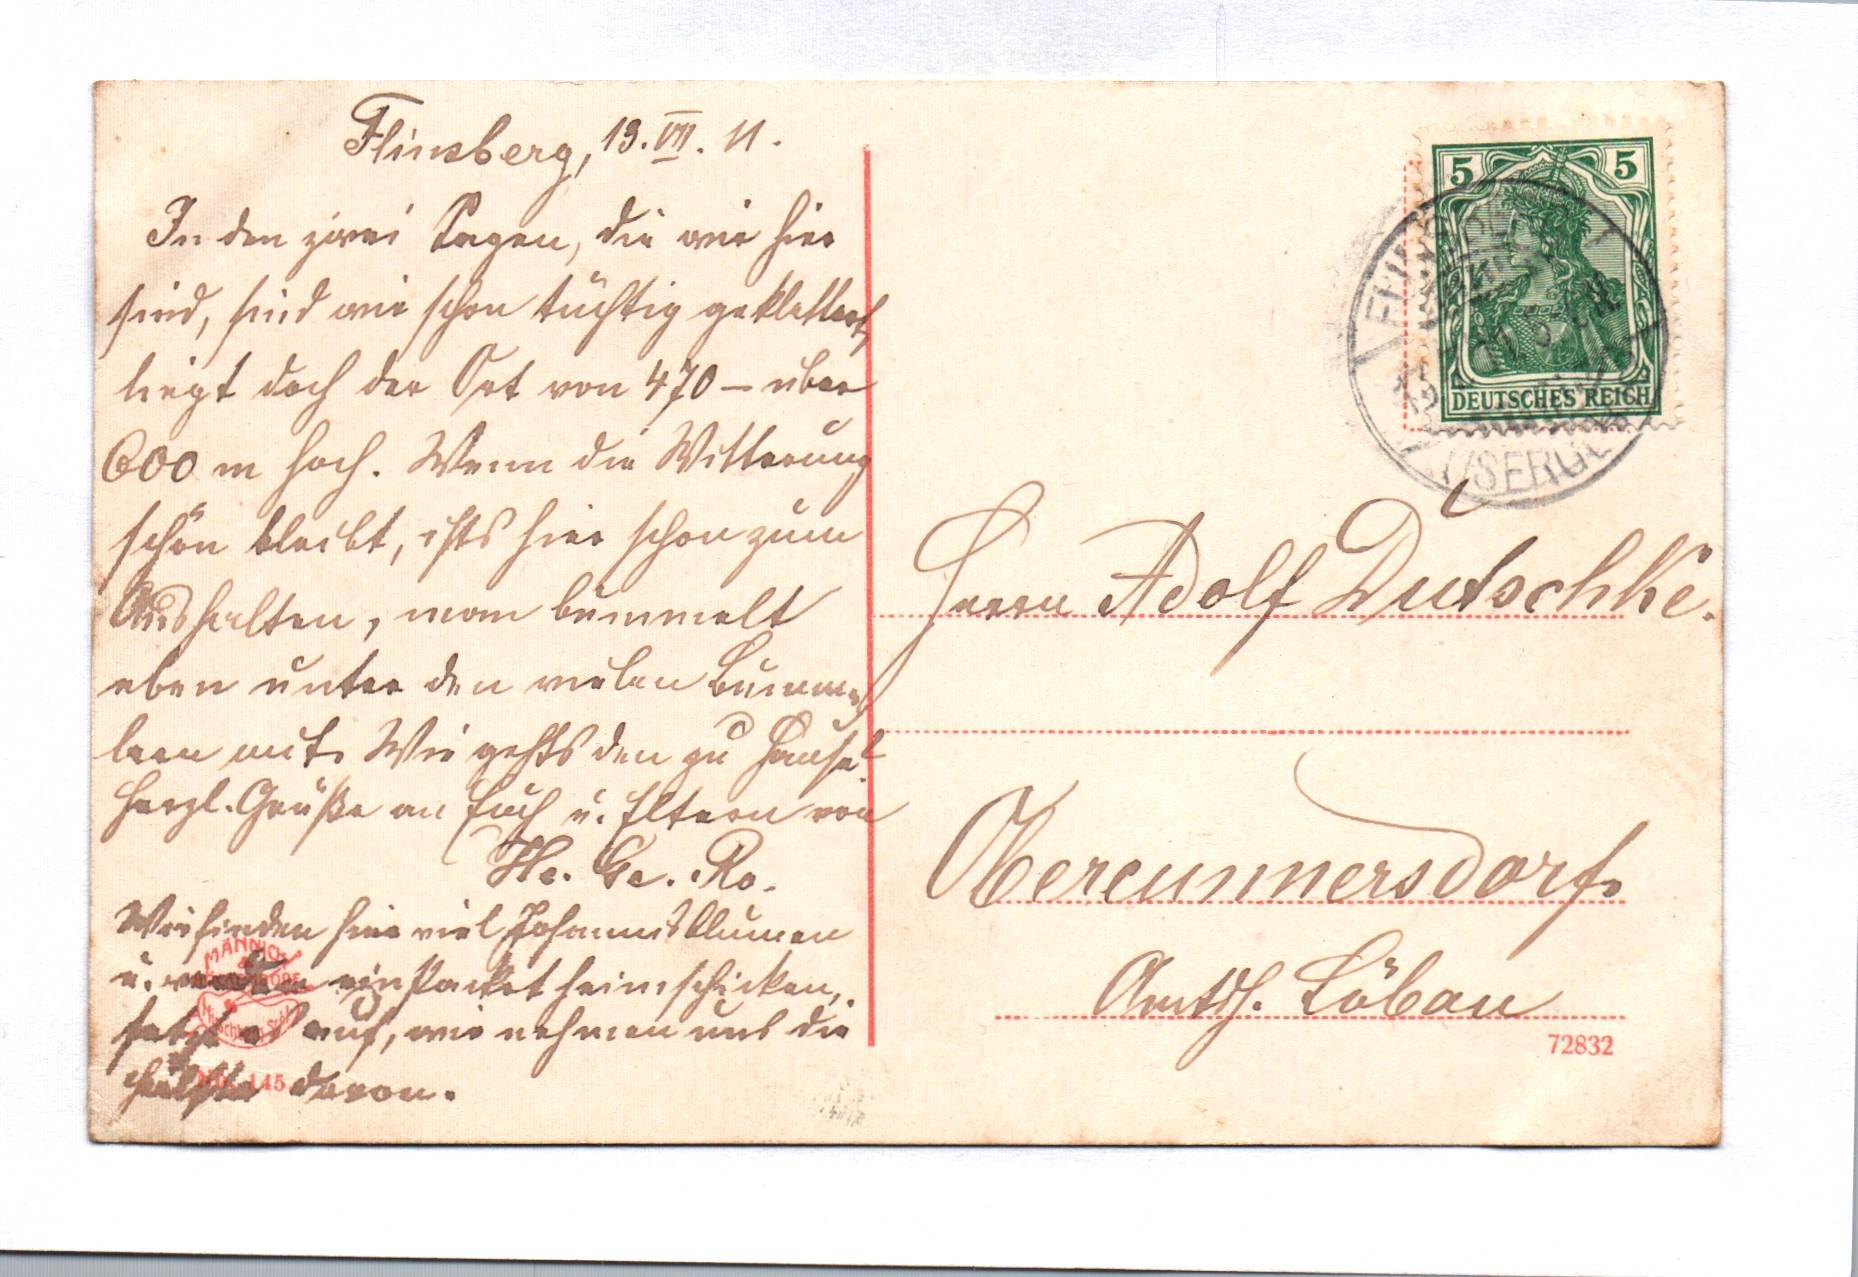 Flinsberg, 13. VII. 11.
In den zwei Tagen, die wir hier
sind, sind wir schon tüchtig geklettert,
liegt doch der Ort von 470 – über
600 m hoch. Wenn die Witterung
schön bleibt, ists hier schon zum
Aushalten, man bummelt
eben unter den vielen Bumm-
lern mit. Wie gehts den zu Hause?
Herzl. Grüße an Euch u. Eltern von
He. Ge. Ro.
Wir finden hier viel Johannisblumen
u. ein Packet heimschicken,
auf, wir nehmen uns die
Hälfte davon.
MÄNNICH
&
Hirschberg Schl.
No. 145
5 5
DEUTSCHES REICH
ISERGEB
Herrn Adolf Dutschke.
Obercunnersdorf.
Amtsh. Löbau
72832